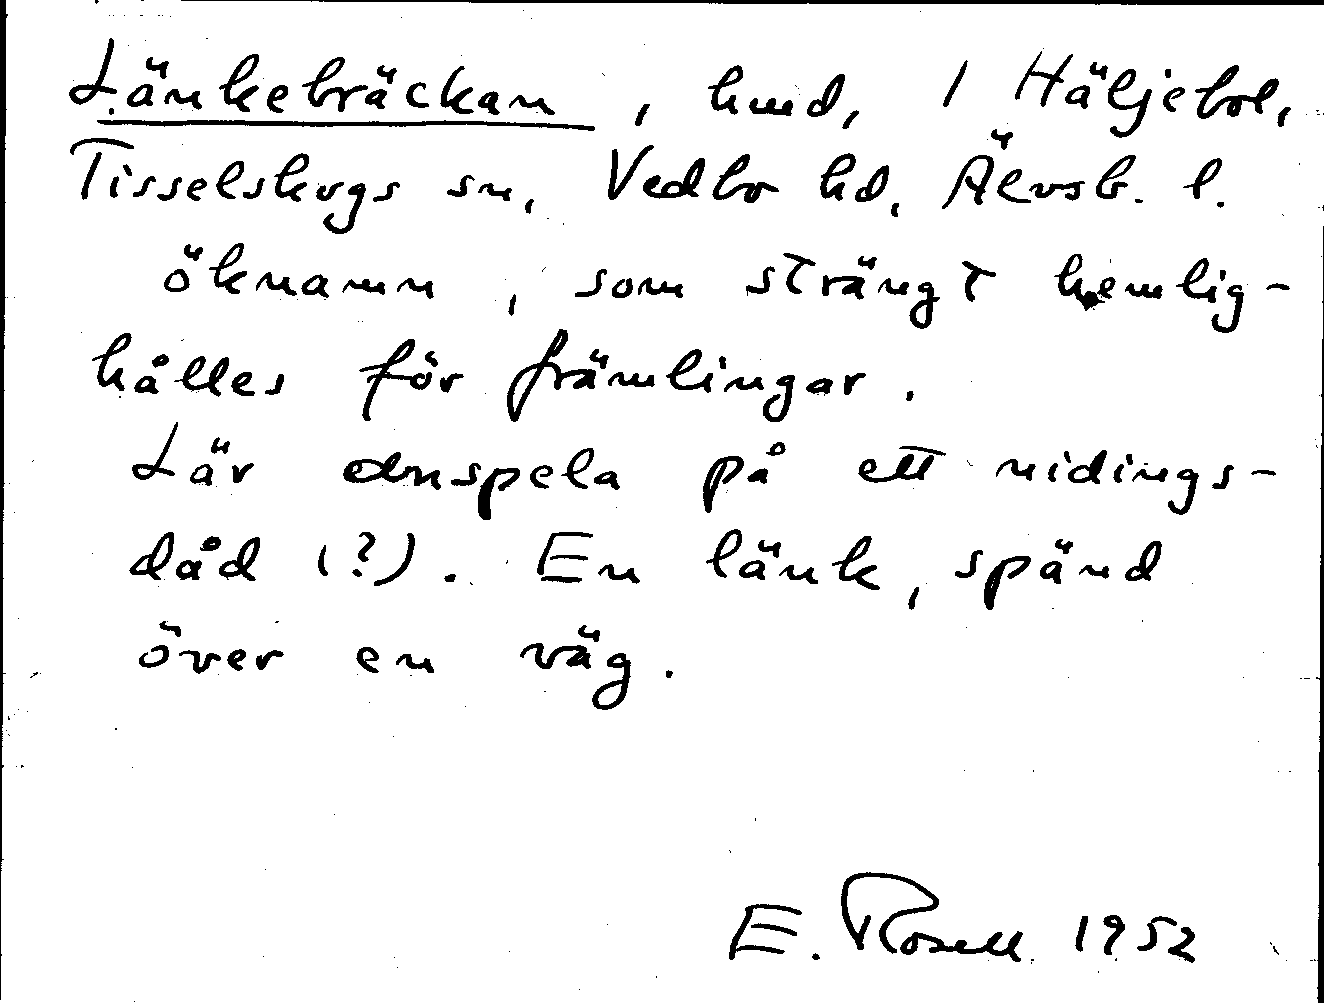 Länkebräckan, hmd, 1 Häljebol,
Tisselskogs sn, Vedbo hd, Älvsb. l.
öknamn, som strängt hemlig-
hålles för främlingar.
Lär anspela på ett nidings-
dåd (?). En länk, spänd
över en väg.
E. Rosell 1952